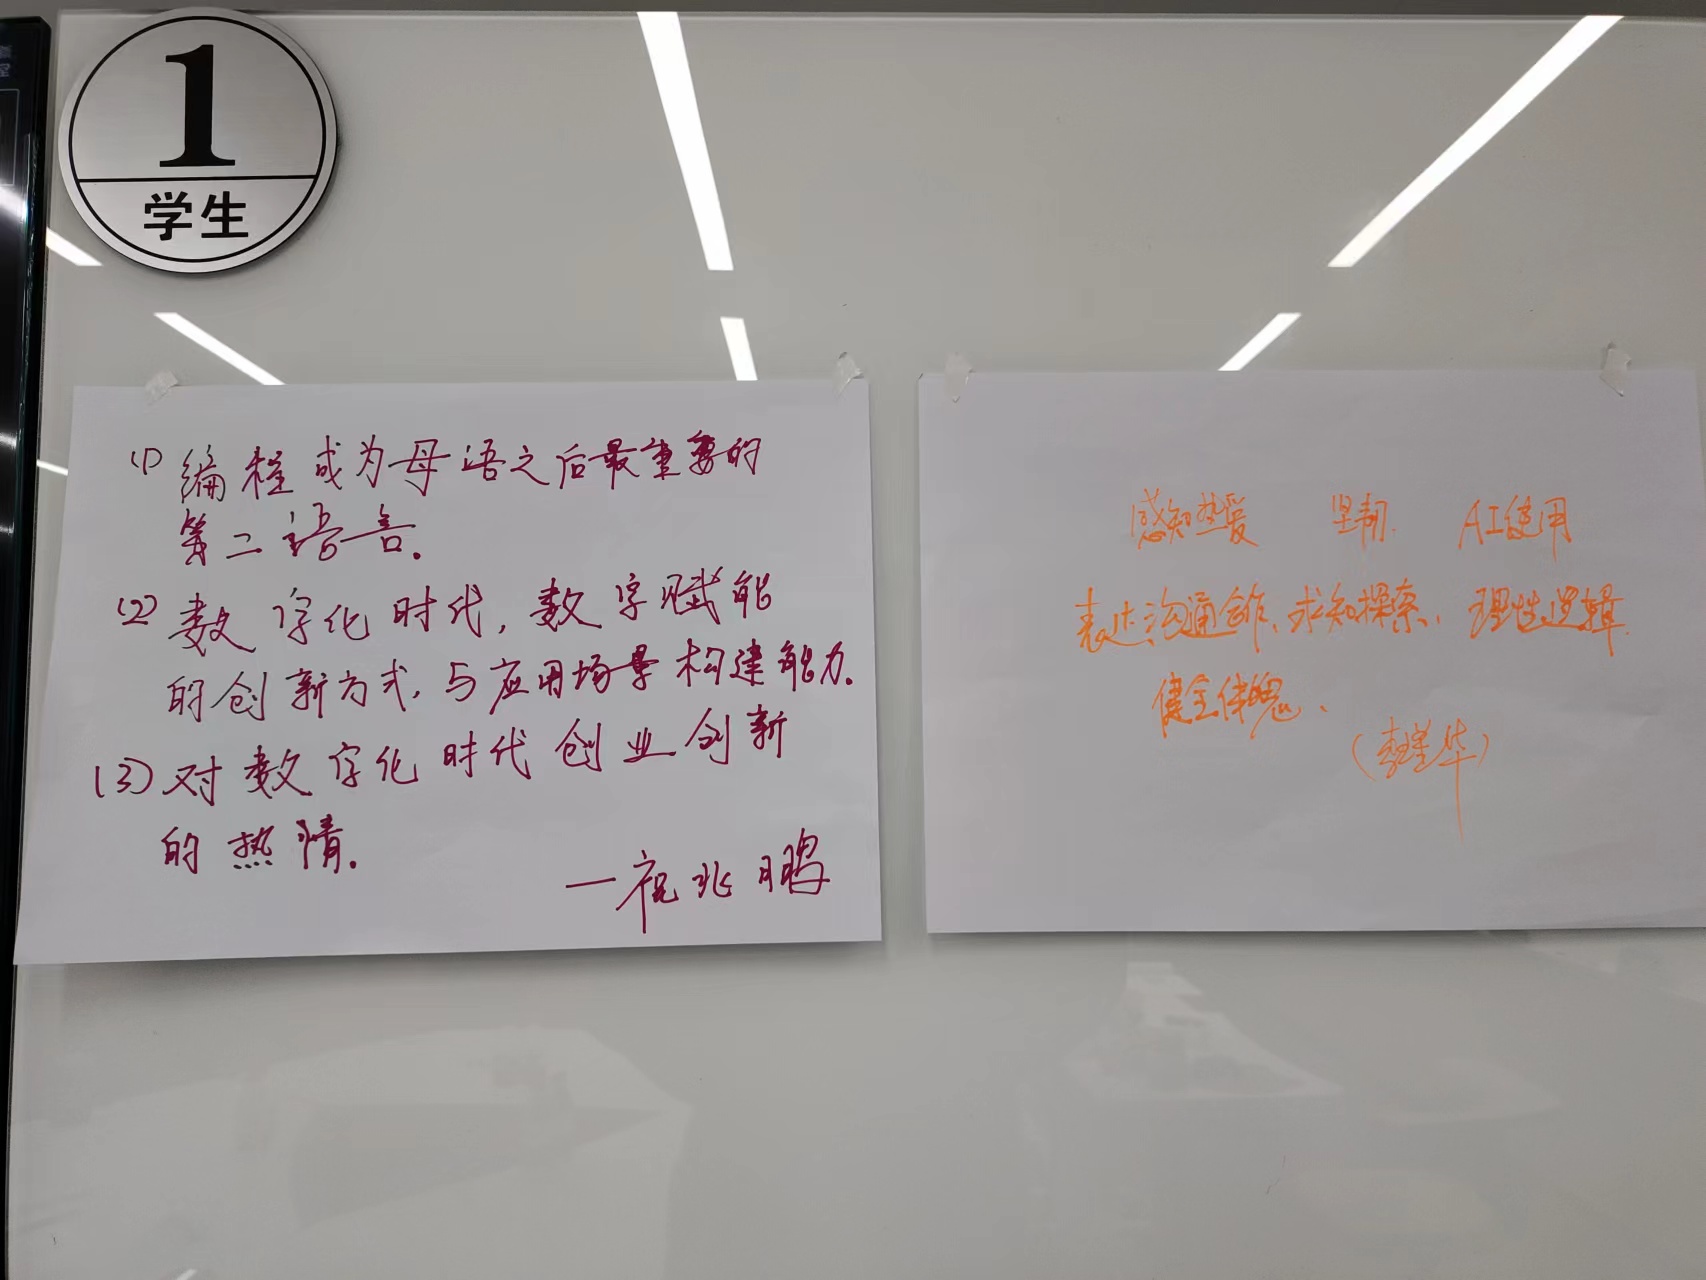 1
学生
(1) 编程成为母语之后最重要的
第二语言.
(2) 数字化时代, 数字赋能
的创新方式, 与应用场景构建能力.
(3) 对数字化时代创业创新
的热情.
—祝兆鹏
感知热爱 坚韧. AI使用
表达沟通合作、求知探索、理性逻辑.
健全体魄、